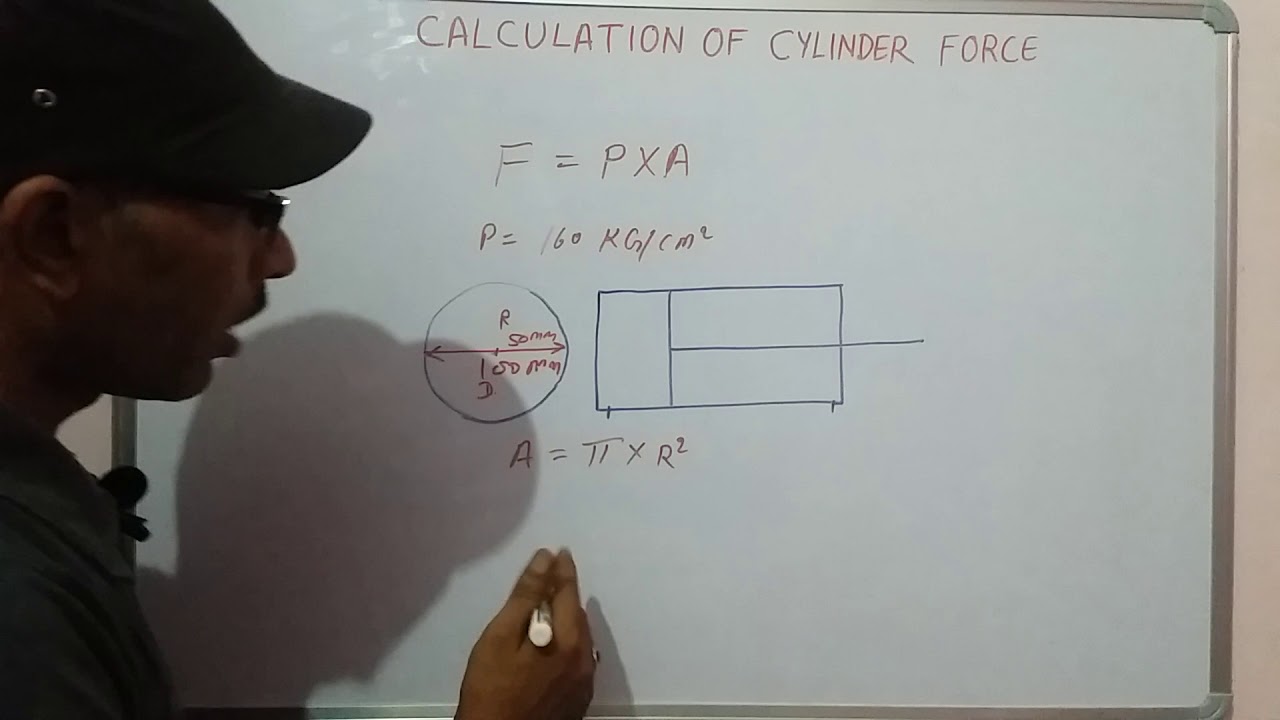 CALCULATION OF CYLINDER FORCE
F = P X A
P = 160 KG/cm²
R
50mm
100 mm
D.
A = π × R²